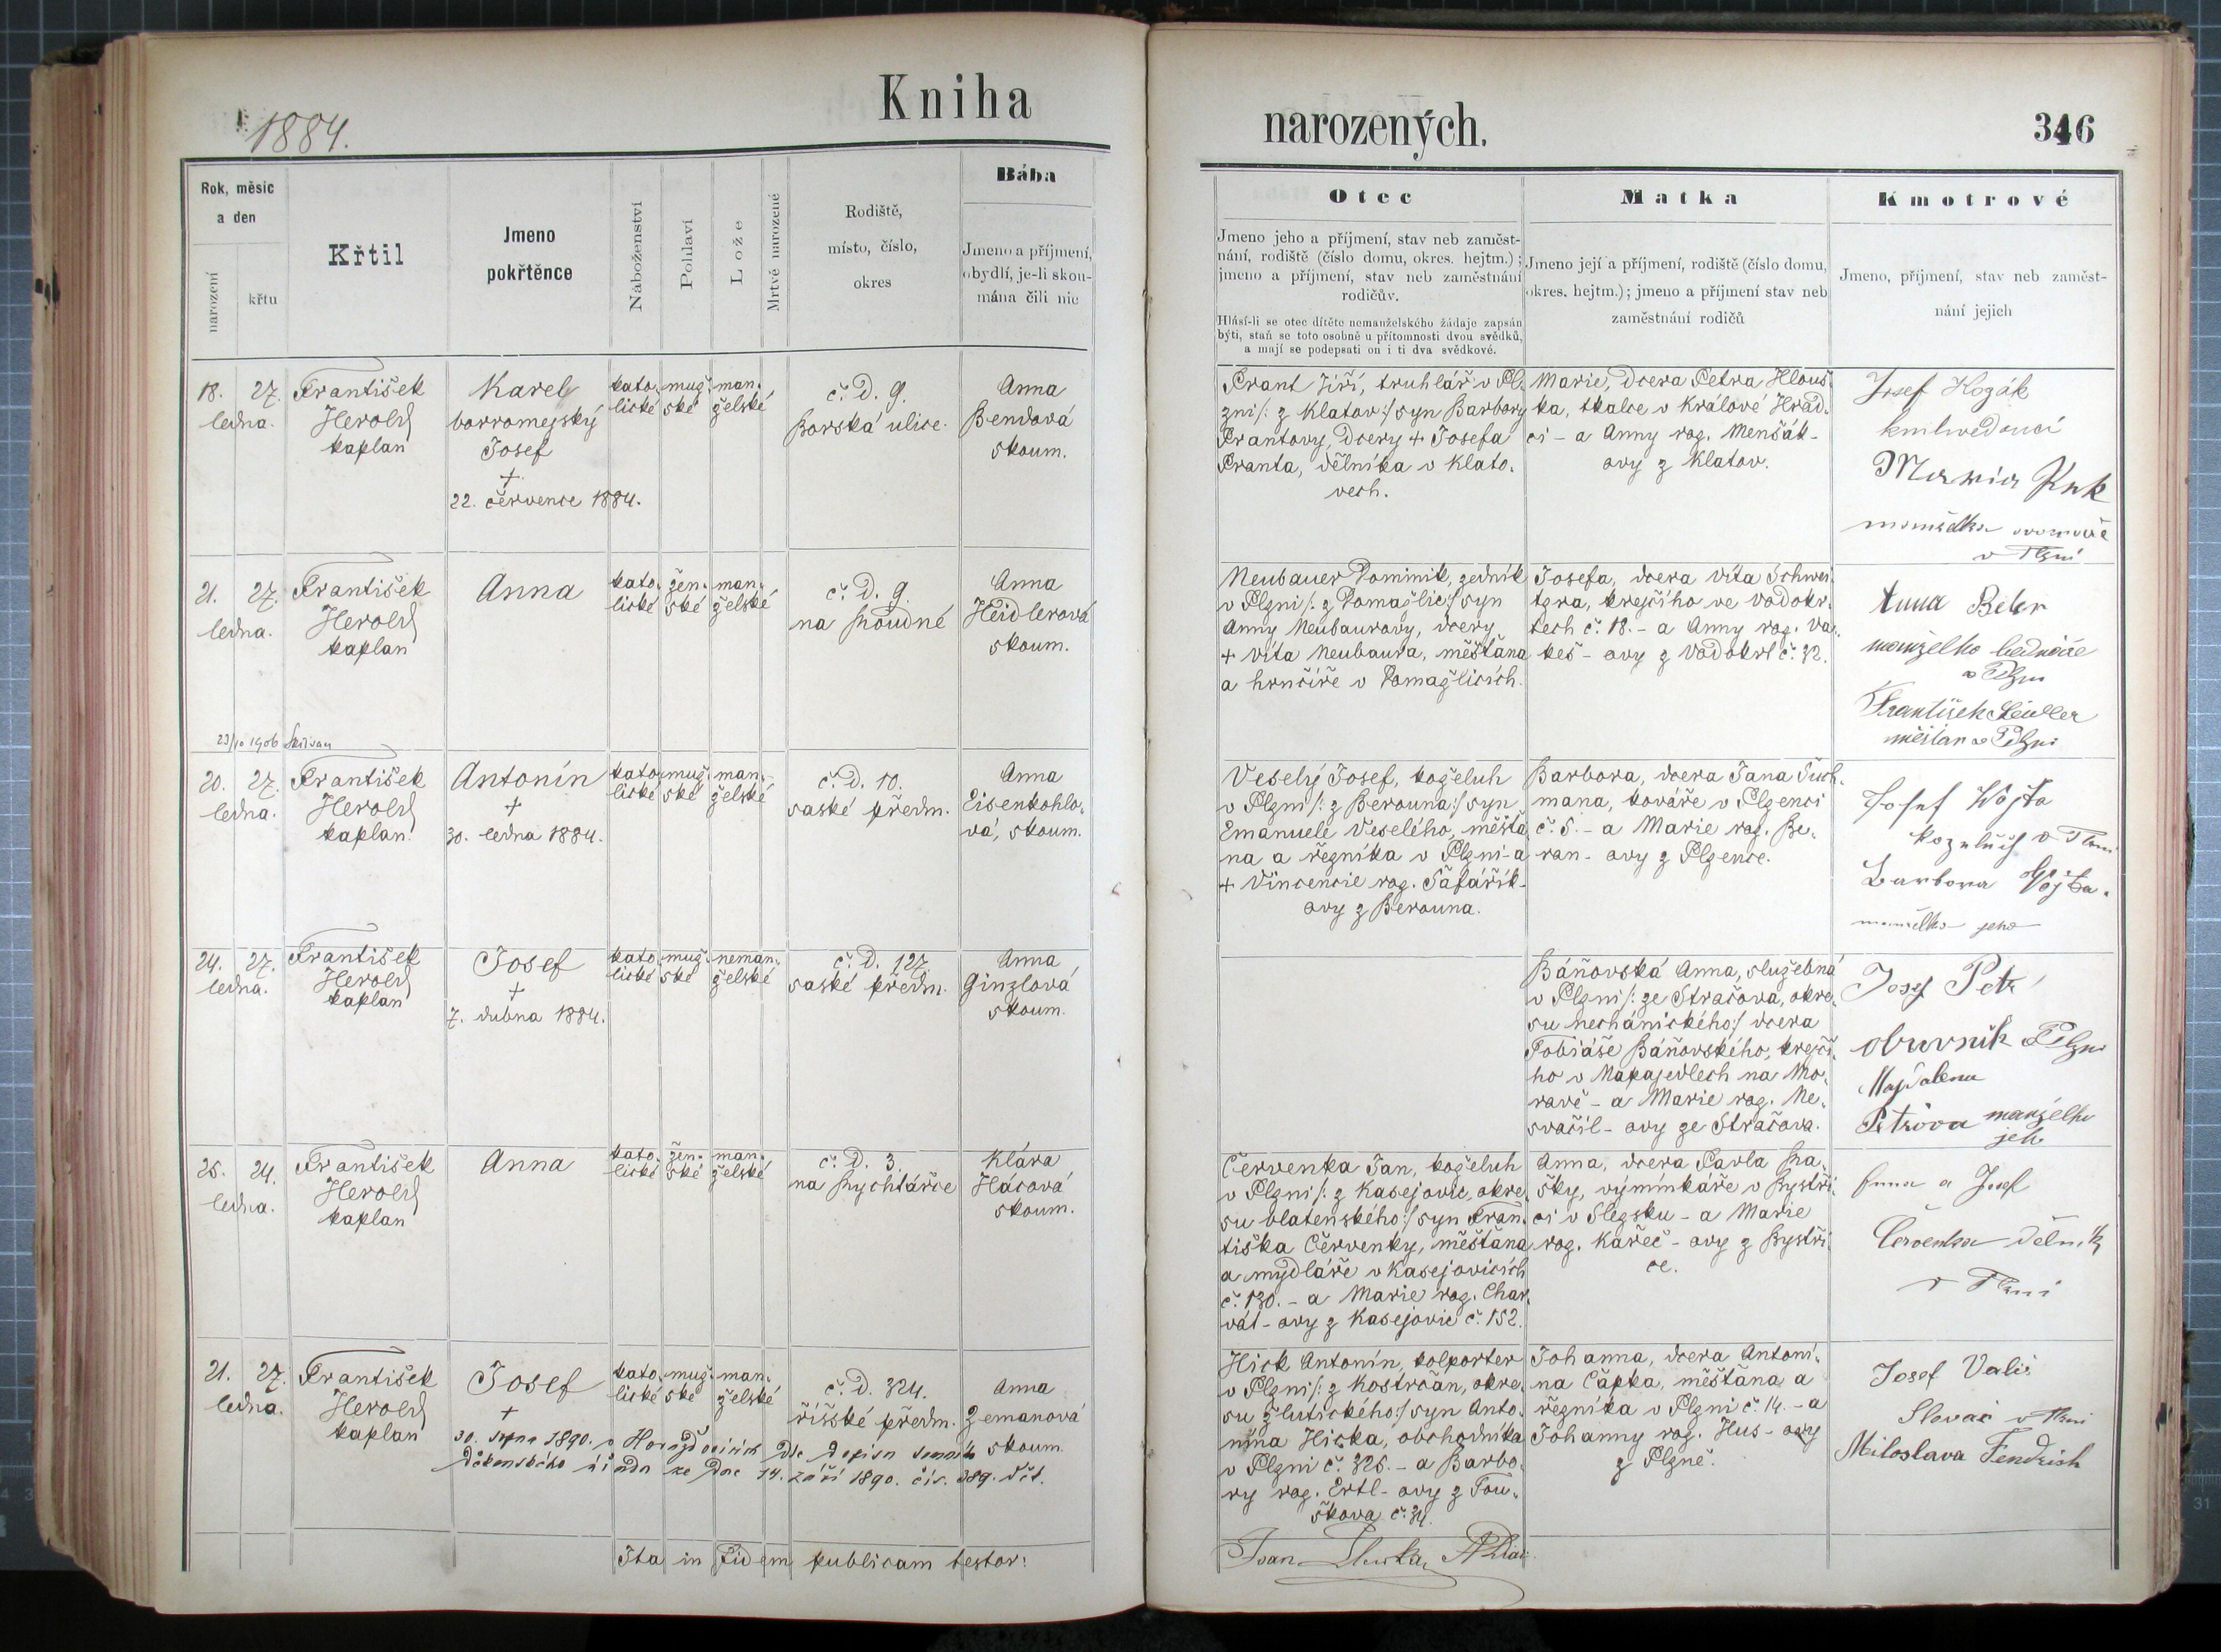 Kniha
narozených.
1884.
346
Rok, měsíc
a den
narození
křtu
Křtil
Jmeno
pokřtěnce
Náboženství
Pohlaví
Lože
Mrtvě narozené
Rodiště,
místo, číslo,
okres
Bába
Jmeno a příjmení,
obydlí, je-li skou-
mána čili nic
Otec
Jmeno jeho a příjmení, stav neb zaměst-
nání, rodiště (číslo domu, okres. hejtm.);
jmeno a příjmení, stav neb zaměstnání
rodičův.
Hlásí-li se otec dítěte nemanželského žádaje zapsán
býti, staň se toto osobně u přítomnosti dvou svědků,
a mají se podepsati on i ti dva svědkové.
Matka
Jmeno její a příjmení, rodiště (číslo domu,
okres. hejtm.); jmeno a příjmení stav neb
zaměstnání rodičů
Kmotrové
Jmeno, příjmení, stav neb zaměst-
nání jejich
18. 27.
ledna.
František
Herold
kaplan
Karel
borromejský
Josef
+
22. července 1884.
kato-
lické
muž-
ské
man-
želské
č. D. 9.
Borská ulice.
Anna
Bendová
skoum.
Frant Jiří, truhlář v Pl-
zni /: z Klatov :/ syn Barbory
Frantovy, dcery + Josefa
Franta, dělníka v Klato-
vech.
Marie, dcera Petra Hlouš-
ka, tkalce v Králové Hrad-
ci - a Anny roz. Menšák-
ovy z Klatov.
Josef Hozák
knihvedoucí
v Plzni
21. 27.
ledna.
František
Herold
kaplan
Anna
kato-
lické
žen-
ské
man-
želské
č. D. 9.
na Proudně
Anna
Heidlerová
skoum.
Neubauer Dominik, zedník
v Plzni /: z Domažlic :/ syn
Anny Neubaurovy, dcery
+ Víta Neubaura, měšťana
a hrnčíře v Domažlicích.
Josefa, dcera Víta Schwei-
tzra, krejčího ve Vodokr-
tech č. 18. - a Anny roz. Va-
keš - ovy z Vodokrt č. 32.
Anna Beber
manželka bednáře
v Plzni
František
měšťan v Plzni
23/10 1906
20. 27.
ledna.
František
Herold
kaplan.
Antonín
+
30. ledna 1884.
kato-
lické
muž-
ské
man-
želské
č. D. 10.
saské předm.
Anna
Eisenkohlo-
vá, skoum.
Veselý Josef, koželuh
v Plzni /: z Berouna :/ syn
Emanuele Veselého, měšťa-
na a řezníka v Plzni - a
+ Vincencie roz. Šafařík-
ovy z Berouna.
Barbora, dcera Jana Tuch-
mana, kováře v Plzenci
č. 5. - a Marie roz. Be-
ran - ovy z Plzence.
Josef Vojta
v Plzni
Barbora Vojta.
manželka jeho
24. 27.
ledna.
František
Herold
kaplan
Josef
+
7. dubna 1884.
kato-
lické
muž-
ské
neman-
želské
č. D. 127
saské předm.
Anna
Ginzlová
skoum.
Báňovská Anna, služebná
v Plzni /: ze Stračova, okre-
su nechánického :/ dcera
Tobiáše Báňovského, krejčí-
ho v Napajedlech na Mo-
ravě - a Marie roz. Ne-
svačil - ovy ze Stračova.
Josef Petr
obuvník Plzni
Majdalena
Petrova manželka
jeho
25. 27.
ledna.
František
Herold
kaplan
Anna
kato-
lické
žen-
ské
man-
želské
č. D. 3.
na Rychtářce
Klára
Hácová
skoum.
Červenka Jan, koželuh
v Plzni /: z Kasejovic, okre-
su blatenského :/ syn Fran-
tiška Červenky, měšťana
a mydláře v Kasejovicích
č. 130. - a Marie roz. Char-
vát - ovy z Kasejovic č. 152.
Anna, dcera Pavla Ra-
šky, výmínkáře v Bystři-
ci v Slezsku - a Marie
roz. Kařeč - ovy z Bystři-
ce.
Anna a Josef
Červenka dělník
v Plzni
21. 27.
ledna.
František
Herold
kaplan
Josef
+
30. srpna 1890. v Horažďovicích dle dopisu
děkanského úřadu ze dne 14. září 1890. čís. 289.
kato-
lické
muž-
ské
man-
želské
č. D. 324.
říšské předm.
Anna
Zemanová
skoum.
Hick Antonín, kolporter
v Plzni /: z Kostrčan, okre-
su žlutického :/ syn Anto-
nína Hicka, obchodníka
v Plzni č. 325. - a Barbo-
ry roz. Ertl - ovy z Tou-
škova č. 34.
Johanna, dcera Antoní-
na Čapka, měšťana a
řezníka v Plzni č. 14. - a
Johanny roz. Hus - ovy
z Plzně.
Josef Valeš
v Plzni
Miloslava Fendrich
Ita in fidem publicam testor: